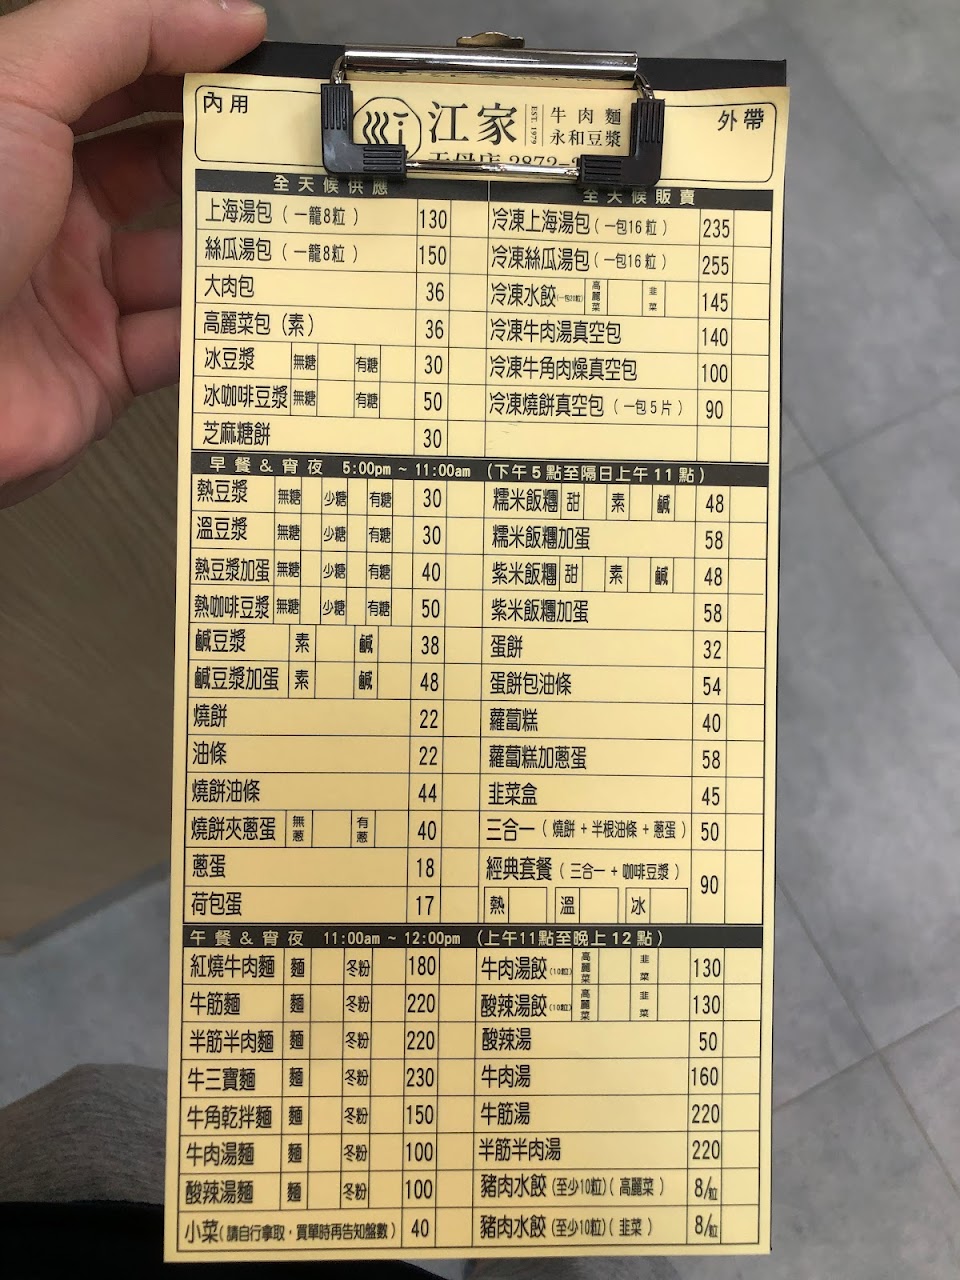 內用
江家
EST. 1979
牛肉麵
永和豆漿
外帶
天母店 2872-
全天候供應
上海湯包（一籠8粒） 130
絲瓜湯包（一籠8粒） 150
大肉包 36
高麗菜包（素） 36
冰豆漿 無糖 有糖 30
冰咖啡豆漿 無糖 有糖 50
芝麻糖餅 30
全天候販賣
冷凍上海湯包（一包16粒） 235
冷凍絲瓜湯包（一包16粒） 255
冷凍水餃 高麗菜 韭菜 145
冷凍牛肉湯真空包 140
冷凍牛角肉燥真空包 100
冷凍燒餅真空包（一包5片） 90
早餐＆宵夜 5:00pm ~ 11:00am （下午5點至隔日上午11點）
熱豆漿 無糖 少糖 有糖 30
溫豆漿 無糖 少糖 有糖 30
熱豆漿加蛋 無糖 少糖 有糖 40
熱咖啡豆漿 無糖 少糖 有糖 50
鹹豆漿 素 鹹 38
鹹豆漿加蛋 素 鹹 48
燒餅 22
油條 22
燒餅油條 44
燒餅夾蔥蛋 無蔥 有蔥 40
蔥蛋 18
荷包蛋 17
糯米飯糰 甜 素 鹹 48
糯米飯糰加蛋 58
紫米飯糰 甜 素 鹹 48
紫米飯糰加蛋 58
蛋餅 32
蛋餅包油條 54
蘿蔔糕 40
蘿蔔糕加蔥蛋 58
韭菜盒 45
三合一（燒餅+半根油條+蔥蛋） 50
經典套餐（三合一+咖啡豆漿） 90
熱 溫 冰
午餐＆宵夜 11:00am ~ 12:00pm （上午11點至晚上12點）
紅燒牛肉麵 麵 冬粉 180
牛筋麵 麵 冬粉 220
半筋半肉麵 麵 冬粉 220
牛三寶麵 麵 冬粉 230
牛角乾拌麵 麵 冬粉 150
牛肉湯麵 麵 冬粉 100
酸辣湯麵 麵 冬粉 100
小菜（請自行拿取，買單時再告知盤數） 40
牛肉湯餃（10粒） 高麗菜 韭菜 130
酸辣湯餃（10粒） 高麗菜 韭菜 130
酸辣湯 50
牛肉湯 160
牛筋湯 220
半筋半肉湯 220
豬肉水餃（至少10粒）（高麗菜） 8/粒
豬肉水餃（至少10粒）（韭菜） 8/粒